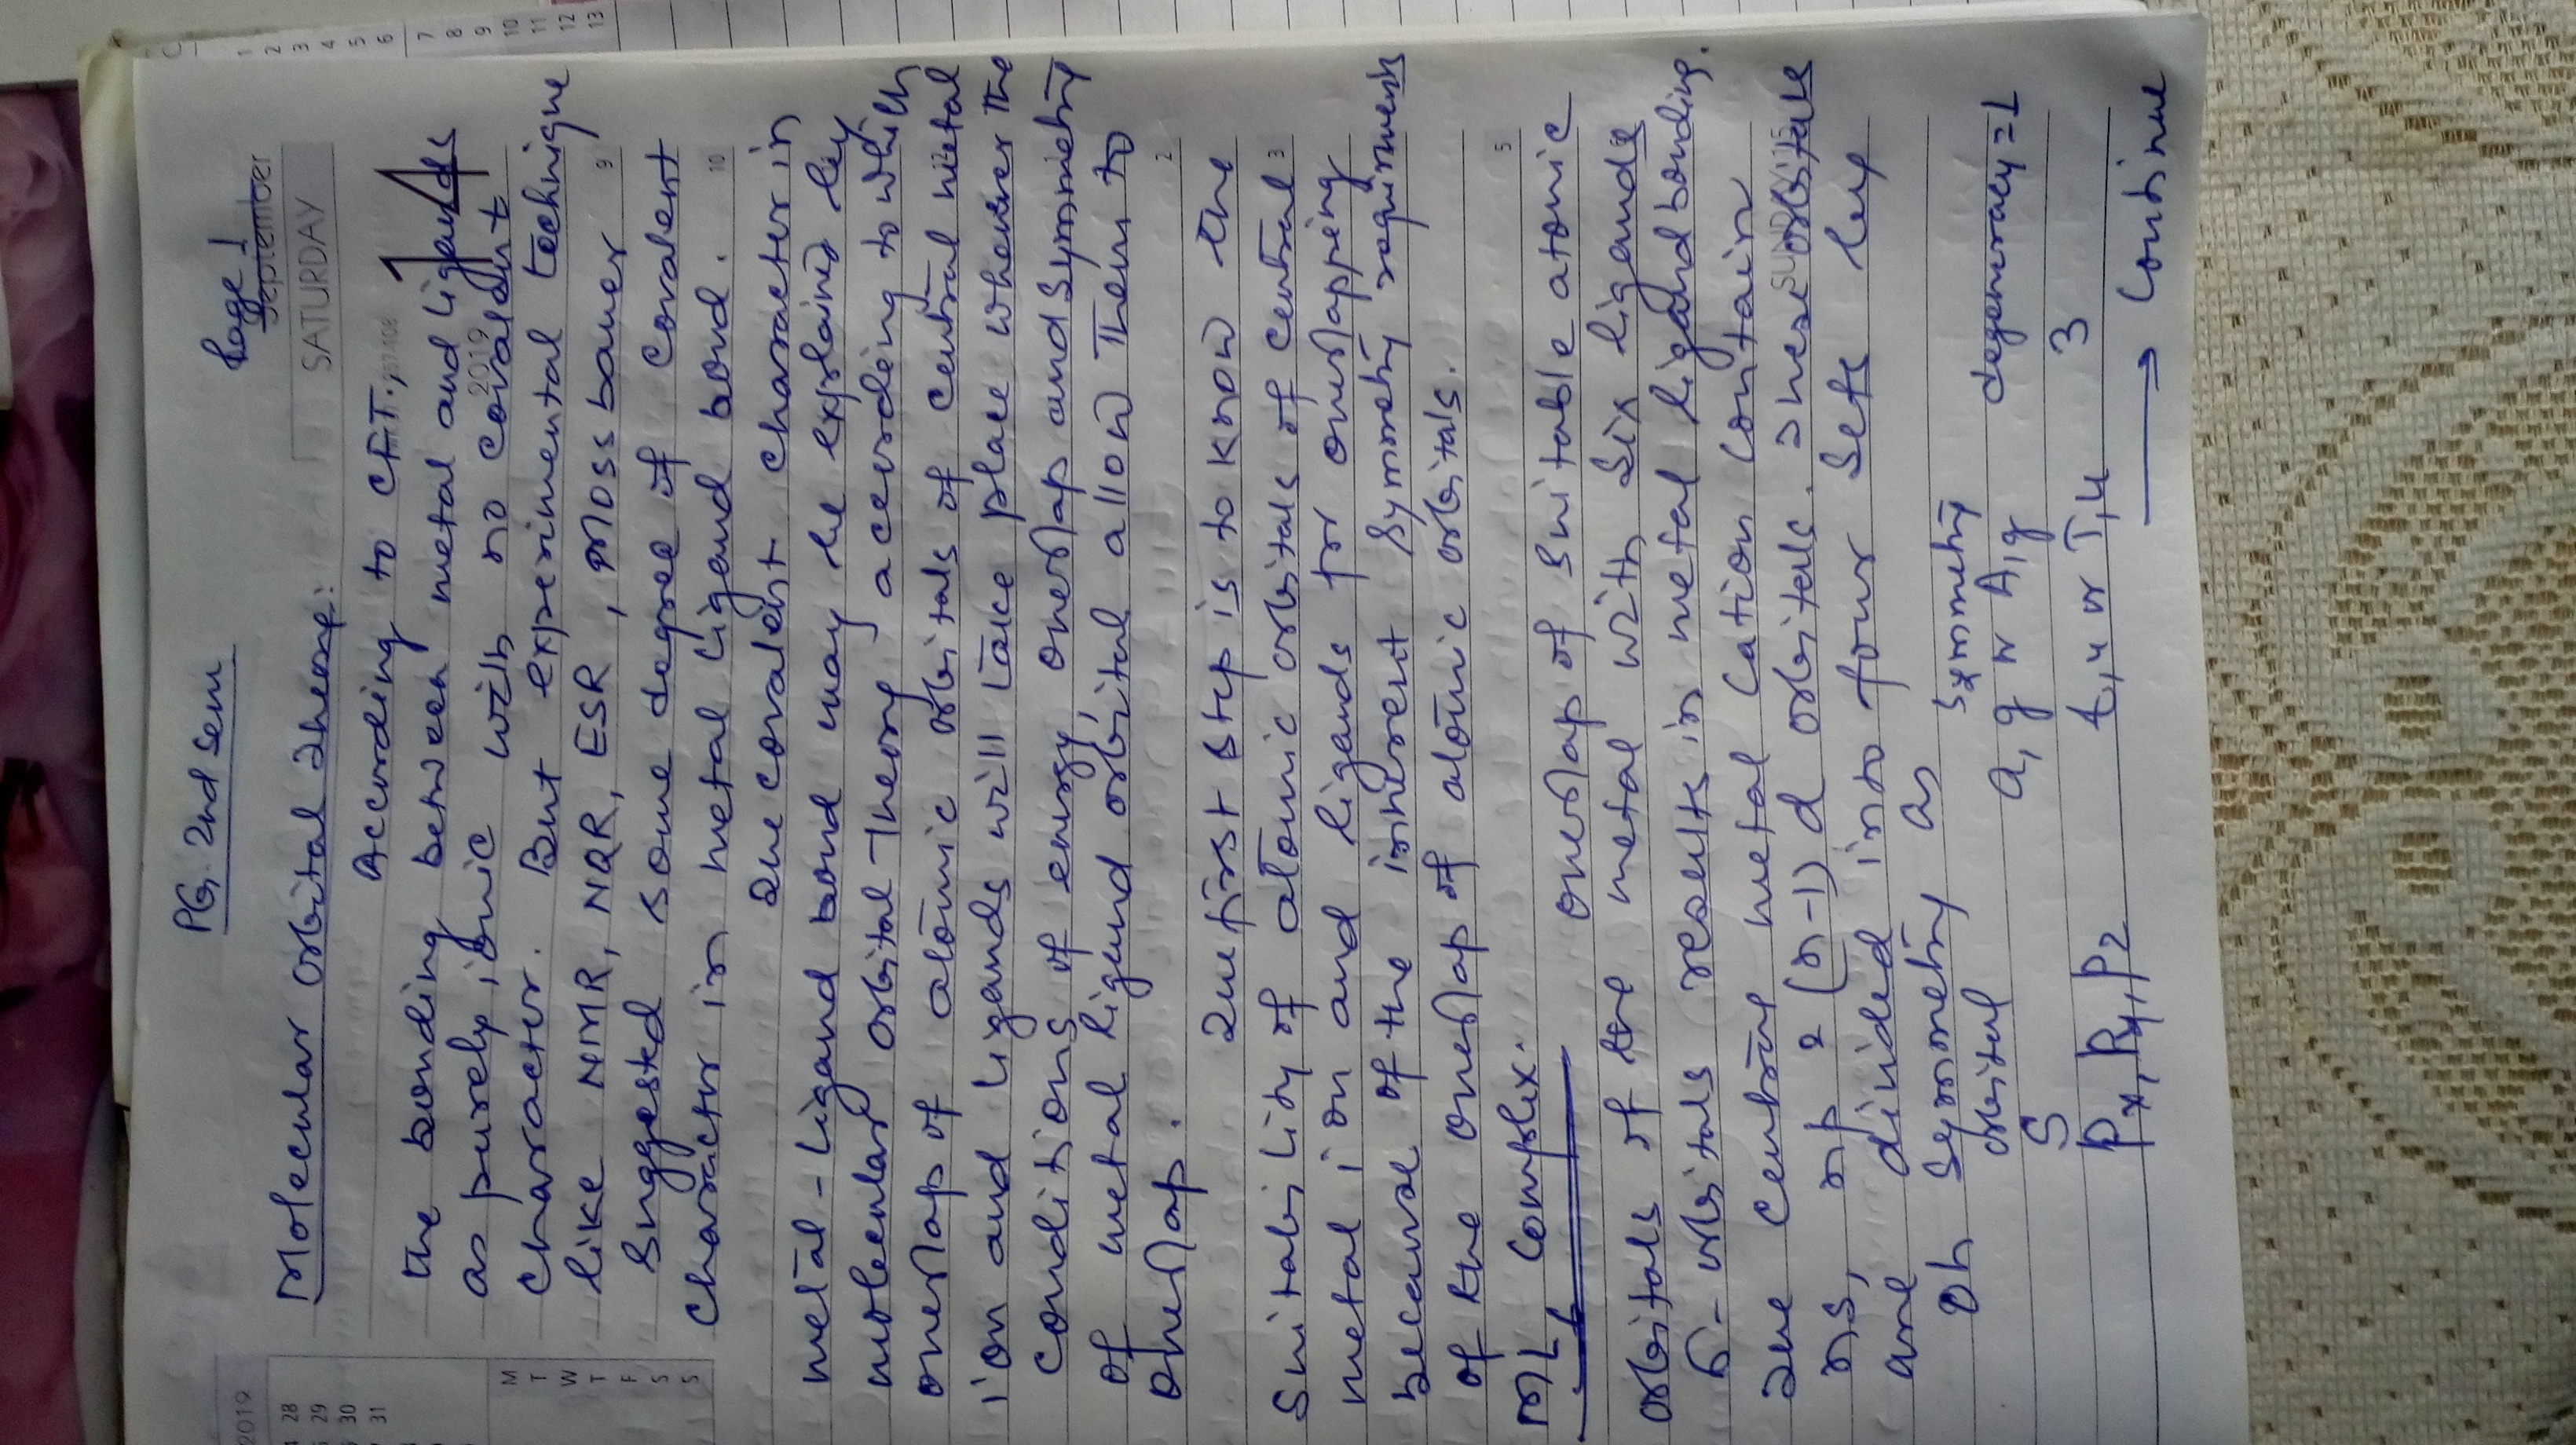 PG. 2nd Sem
Page 1
September
SATURDAY
14
2019
Molecular orbital Theory:
According to CFT.,
the bonding between metal and ligands
as purely ionic with no covalent
character. But experimental technique
like NMR, NQR, ESR, Moss bauer
Suggested some degree of covalent
character in metal ligand bond.
The covalent character in
metal-ligand bond may be explained by
molecular orbital Theory according to which
overlap of atomic orbitals of central metal
ion and ligands will take place whenever the
conditions of energy, overlap and symmetry
of metal ligand orbital allow them to
overlap.
The first step is to know the
Suitability of atomic orbitals of central
metal ion and ligands for overlapping
because of the inherent symmetry requirements
of the overlap of atomic orbitals.
ML6 Complex. overlap of suitable atomic
orbitals of the metal with six ligands
σ-orbitals results in metal ligand bonding.
The central metal cation contain
ns, np & (n-1)d orbitals. These orbitals
are divided into four sets by
Oh symmetry as
orbital symmetry
S a1g or A1g degeneracy=1
Px, Py, Pz t1u or T1u 3
→ Continue
2019
28
29
30
31
M
T
W
T
F
S
S
9
10
2
3
5
SUNDAY 15
1
2
3
4
5
6
7
8
9
10
11
12
13